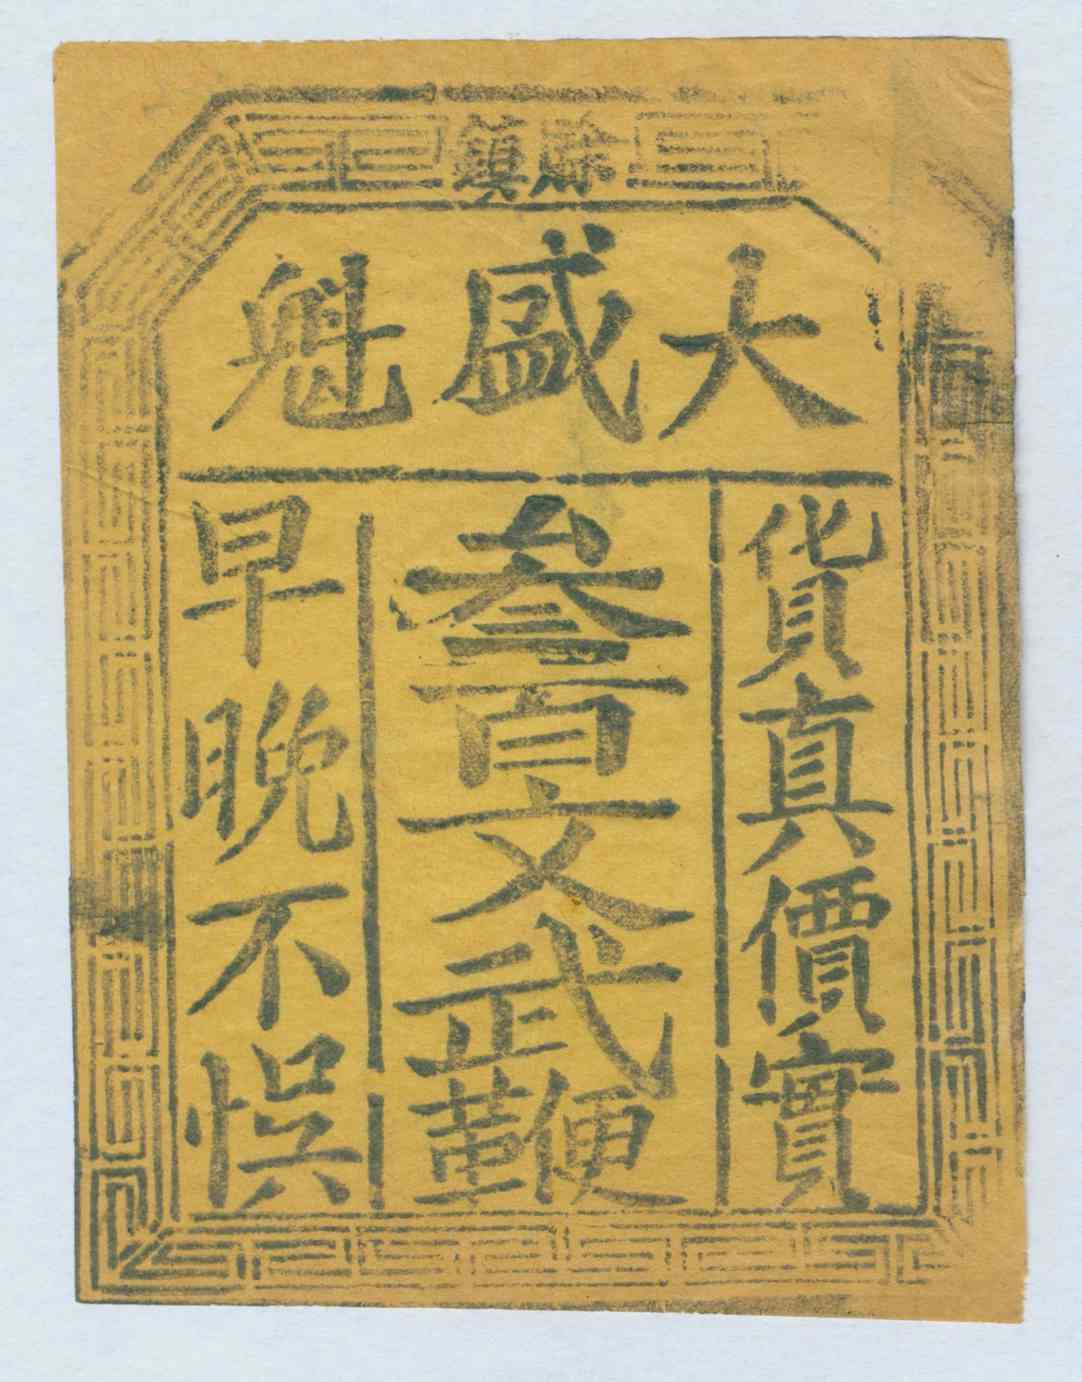 鎮
大盛魁
貨真價實
叁百文武鞭
早晚不悮